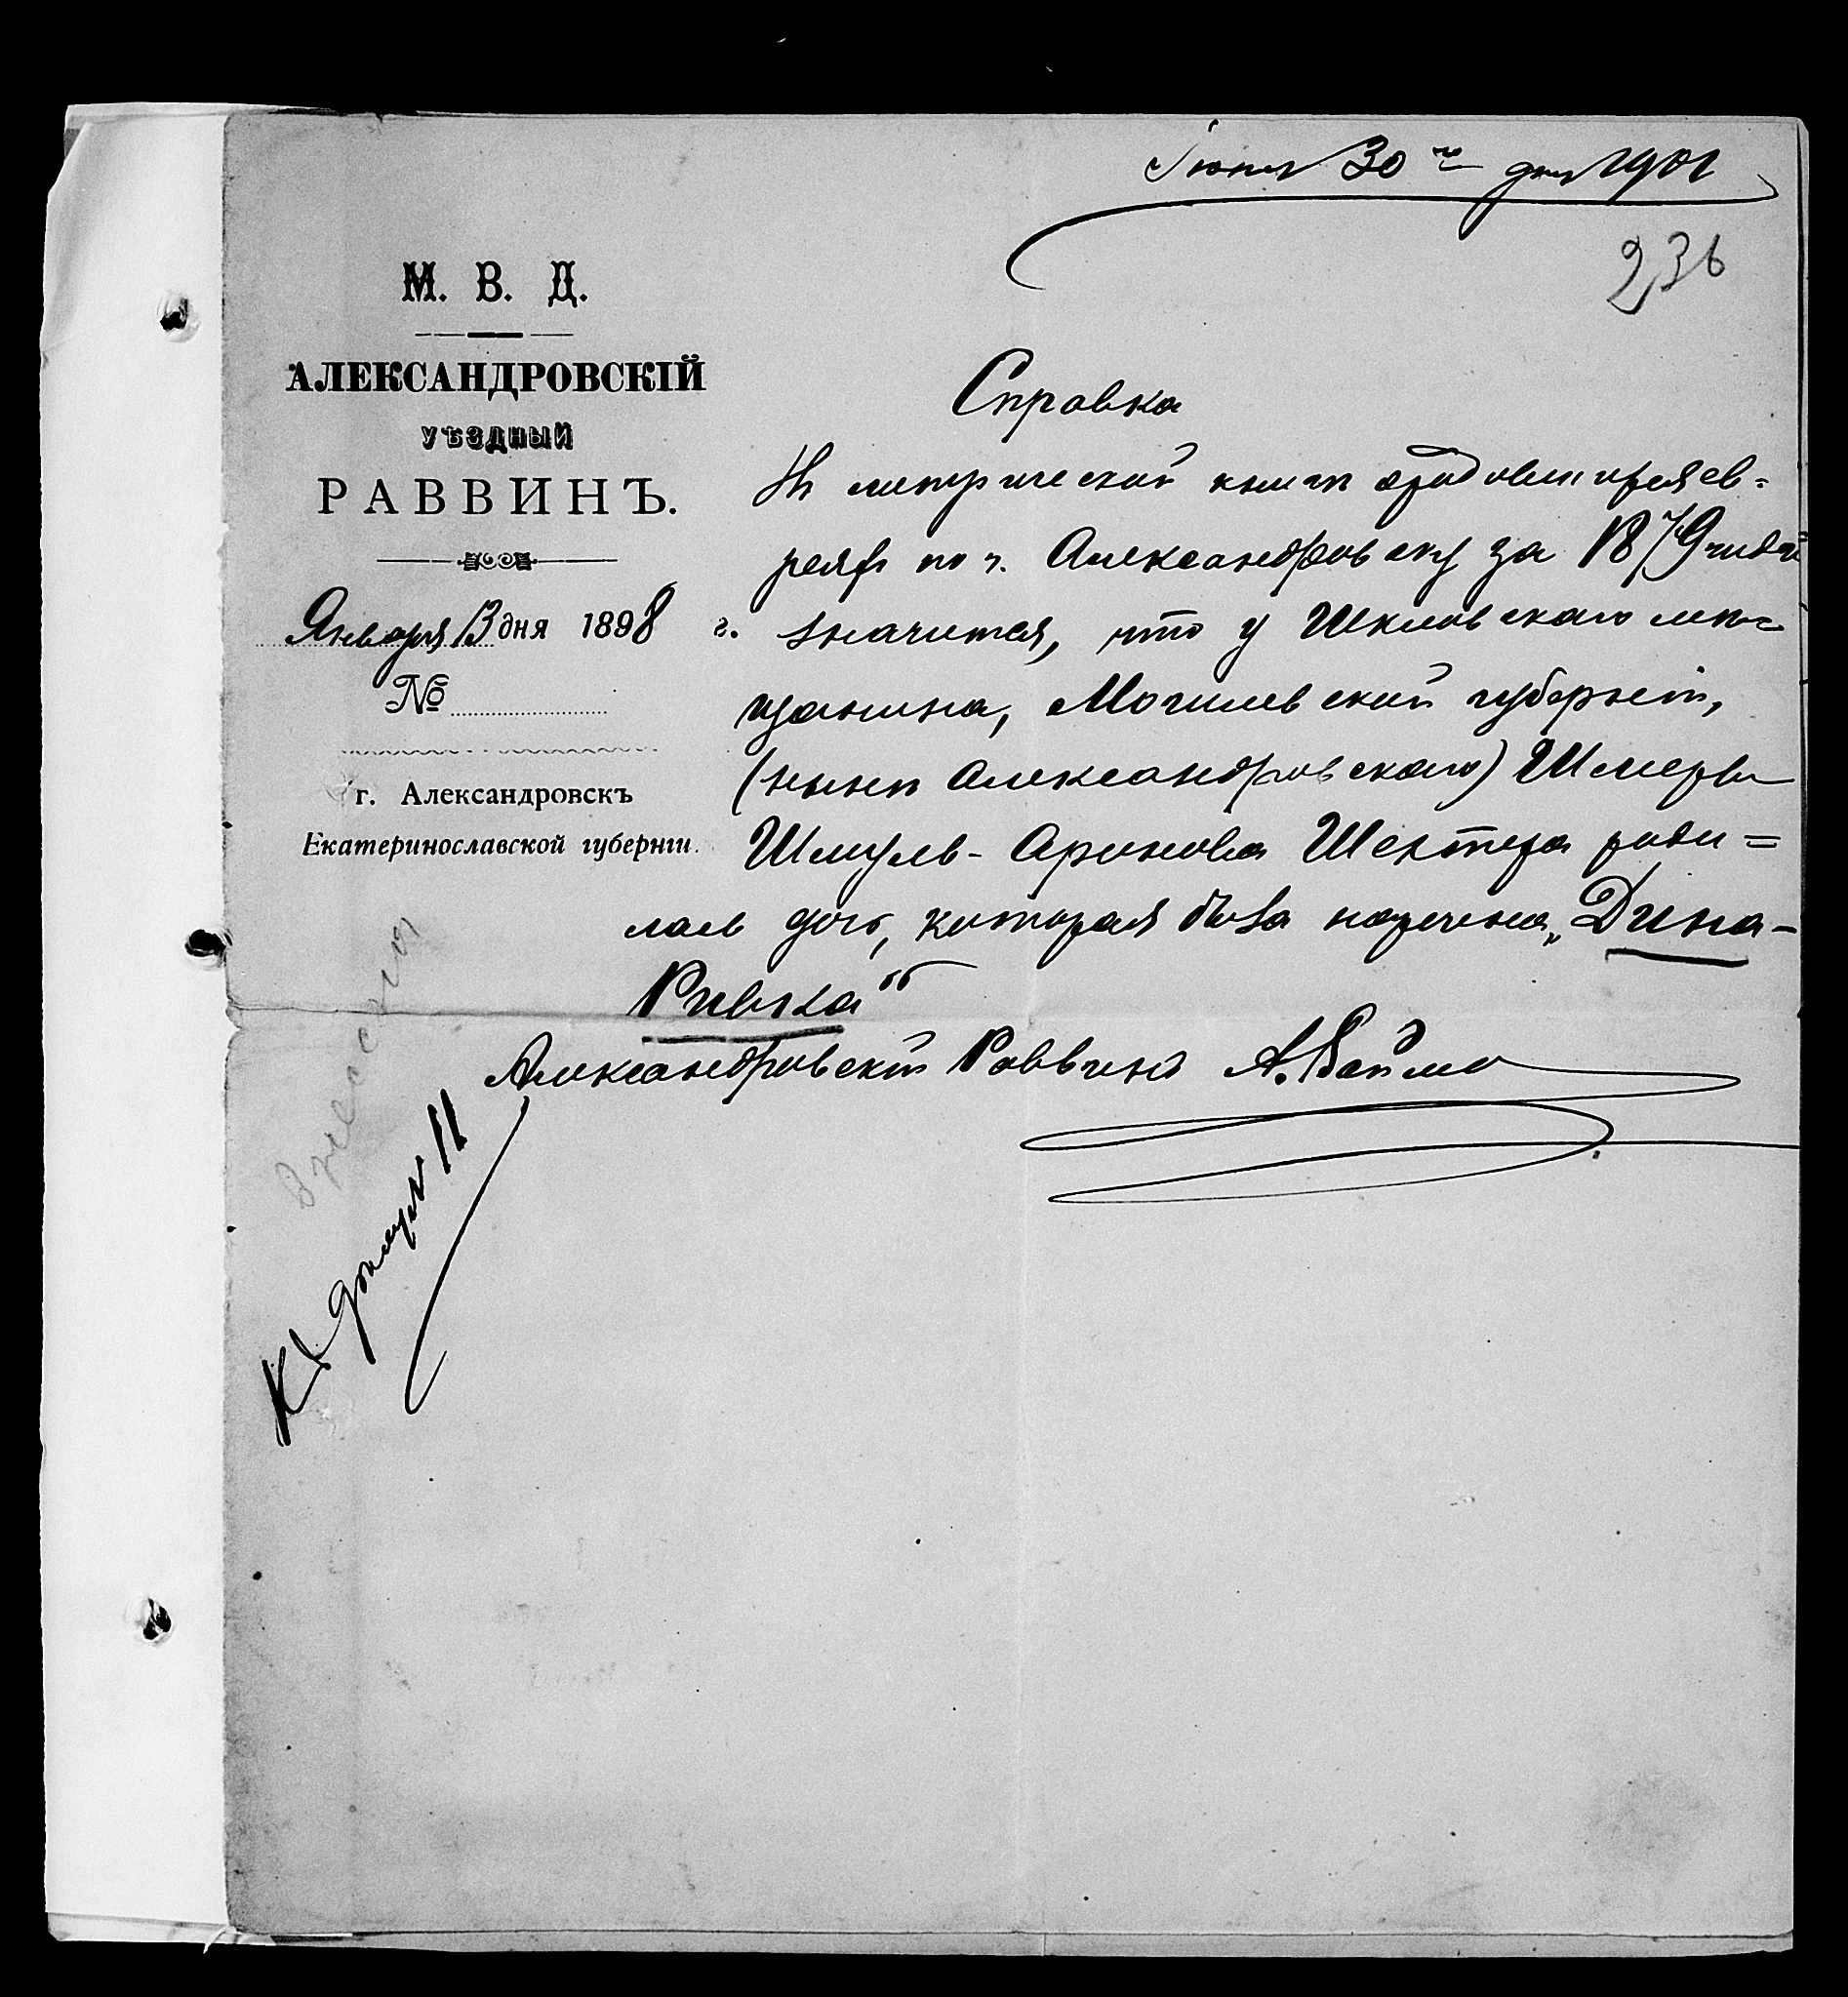 Іюня 30 го дня 1901
236
М. В. Д.
АЛЕКСАНДРОВСКІЙ
УѢЗДНЫЙ
РАВВИНЪ.
Января 13 дня 1898 г.
№
г. Александровскъ
Екатеринославской губерніи.
Справка
Въ метрической книгѣ о родившихся ев-
реяхъ по г. Александровску за 1879 годъ
значится, что у Шкловскаго мѣ-
щанина, Могилевской губерніи,
(нынѣ Александровскаго) Шмерки
Шмуль-Аронова Шехтера роди=
лась дочь, которая была наречена „Дина-
Ривка“
Александровскій Раввинъ А.
Внесена
Къ 11